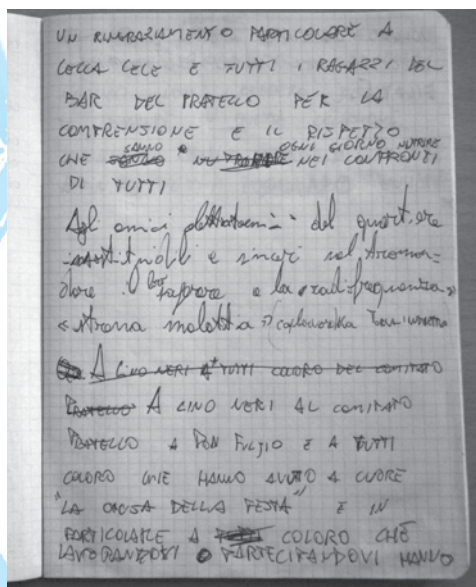 UN RINGRAZIAMENTO PARTICOLARE A
LELLA CELE E TUTTI I RAGAZZI DEL
BAR DEL PRATELLO PER LA
COMPRENSIONE E IL RISPETTO
CHE SANNO OGNI GIORNO NUTRIRE NEI CONFRONTI
DI TUTTI
Agli amici del quartiere
e sinceri nel
il sapore e la «radifrequenza»
«strana malattia»
A CINO NERI A TUTTI COLORO DEL COMITATO
PRATELLO A CINO NERI AL COMITATO
PRATELLO A DON FULJIO E A TUTTI
COLORO CHE HANNO AVUTO A CUORE
"LA CAUSA DELLA FESTA" E IN
PARTICOLARE A COLORO CHE
LAVORANDOVI O PARTECIPANDOVI HANNO